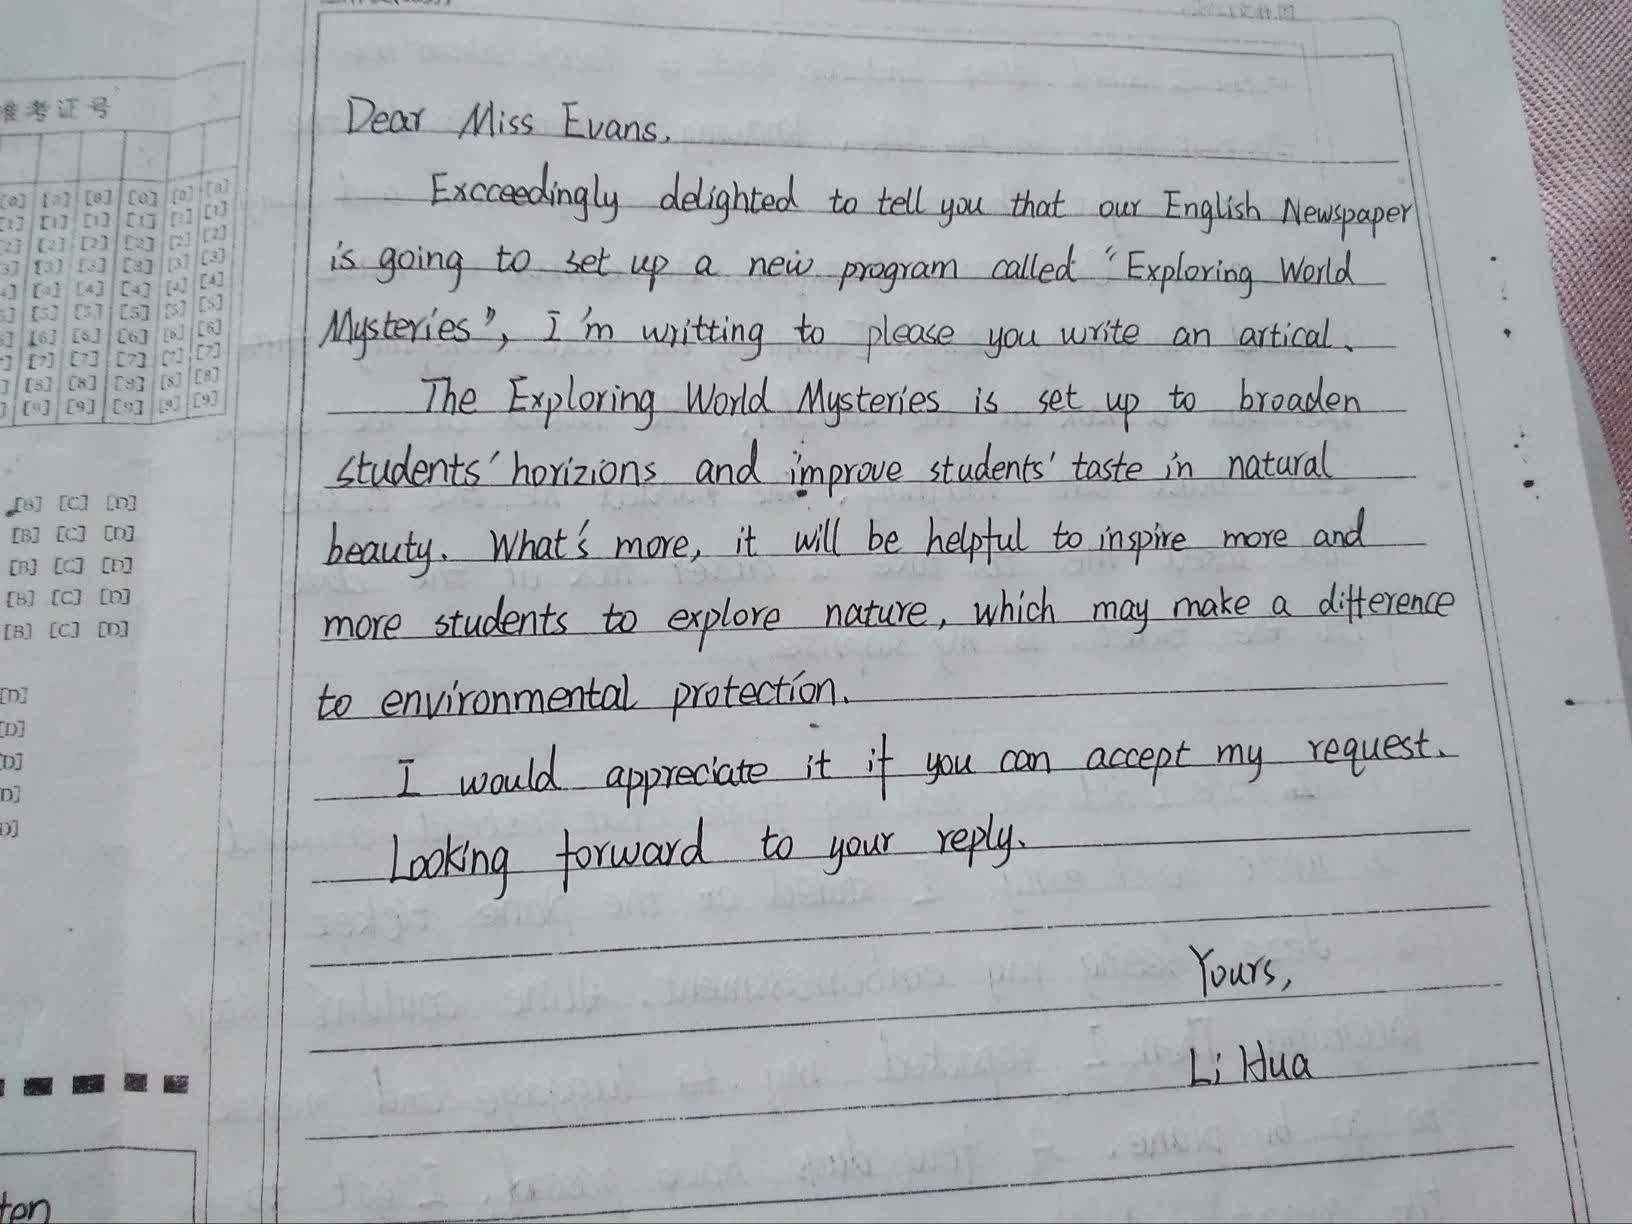 准考证号
Dear Miss Evans,
Excceedingly delighted to tell you that our English Newspaper
is going to set up a new program called "Exploring World
Mysteries", I'm writting to please you write an artical.
The Exploring World Mysteries is set up to broaden
students' horizions and improve students' taste in natural
beauty. What's more, it will be helpful to inspire more and
more students to explore nature, which may make a difference
to environmental protection.
I would appreciate it if you can accept my request.
Looking forward to your reply.
Yours,
Li Hua
[B] [C] [D]
[B] [C] [D]
[B] [C] [D]
[B] [C] [D]
[B] [C] [D]
[D]
[D]
[D]
[D]
[D]